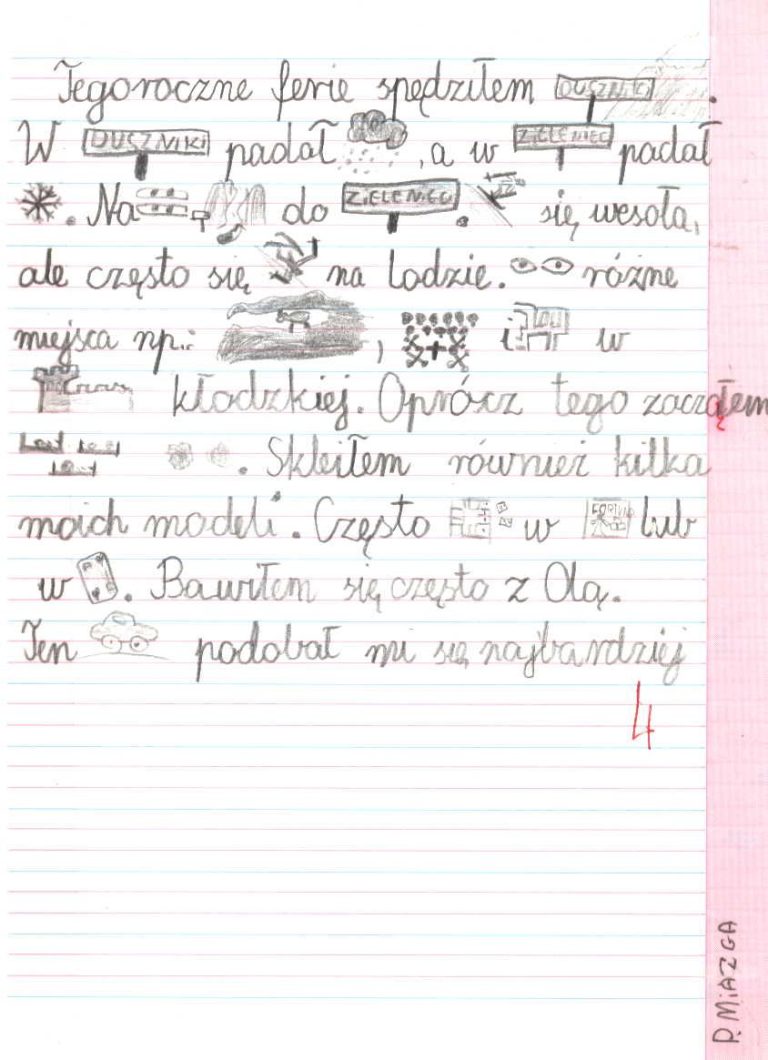 Tegoroczne ferie spędziłem DUSZNIKI.
W DUSZNIKI padał , a w ZIELENIEC padał
. Na do ZIELENIEC. się wesoła,
ale często się na lodzie. różne
miejsca np.: , i w
kłodzkiej. Oprócz tego zacząłem
. Skleiłem również kilka
moich modeli. Często w FORTUNA lub
w . Bawiłem się często z Olą.
Ten podobał mi się najbardziej
4
P. MIAZGA